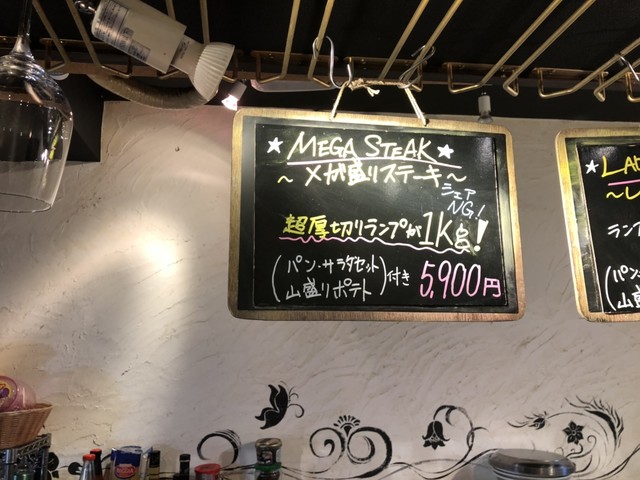 ★ MEGA STEAK ★
～メガ盛りステーキ～
シェア
NG!
超厚切りランプが1Kg!
(パン・サラダセット
山盛りポテト)付き 5,900円
★ LA
～レ
ランプ
(パン・
山盛